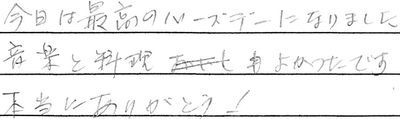 今日は最高のバースデーになりました
音楽と料理もよかったです
本当にありがとう!